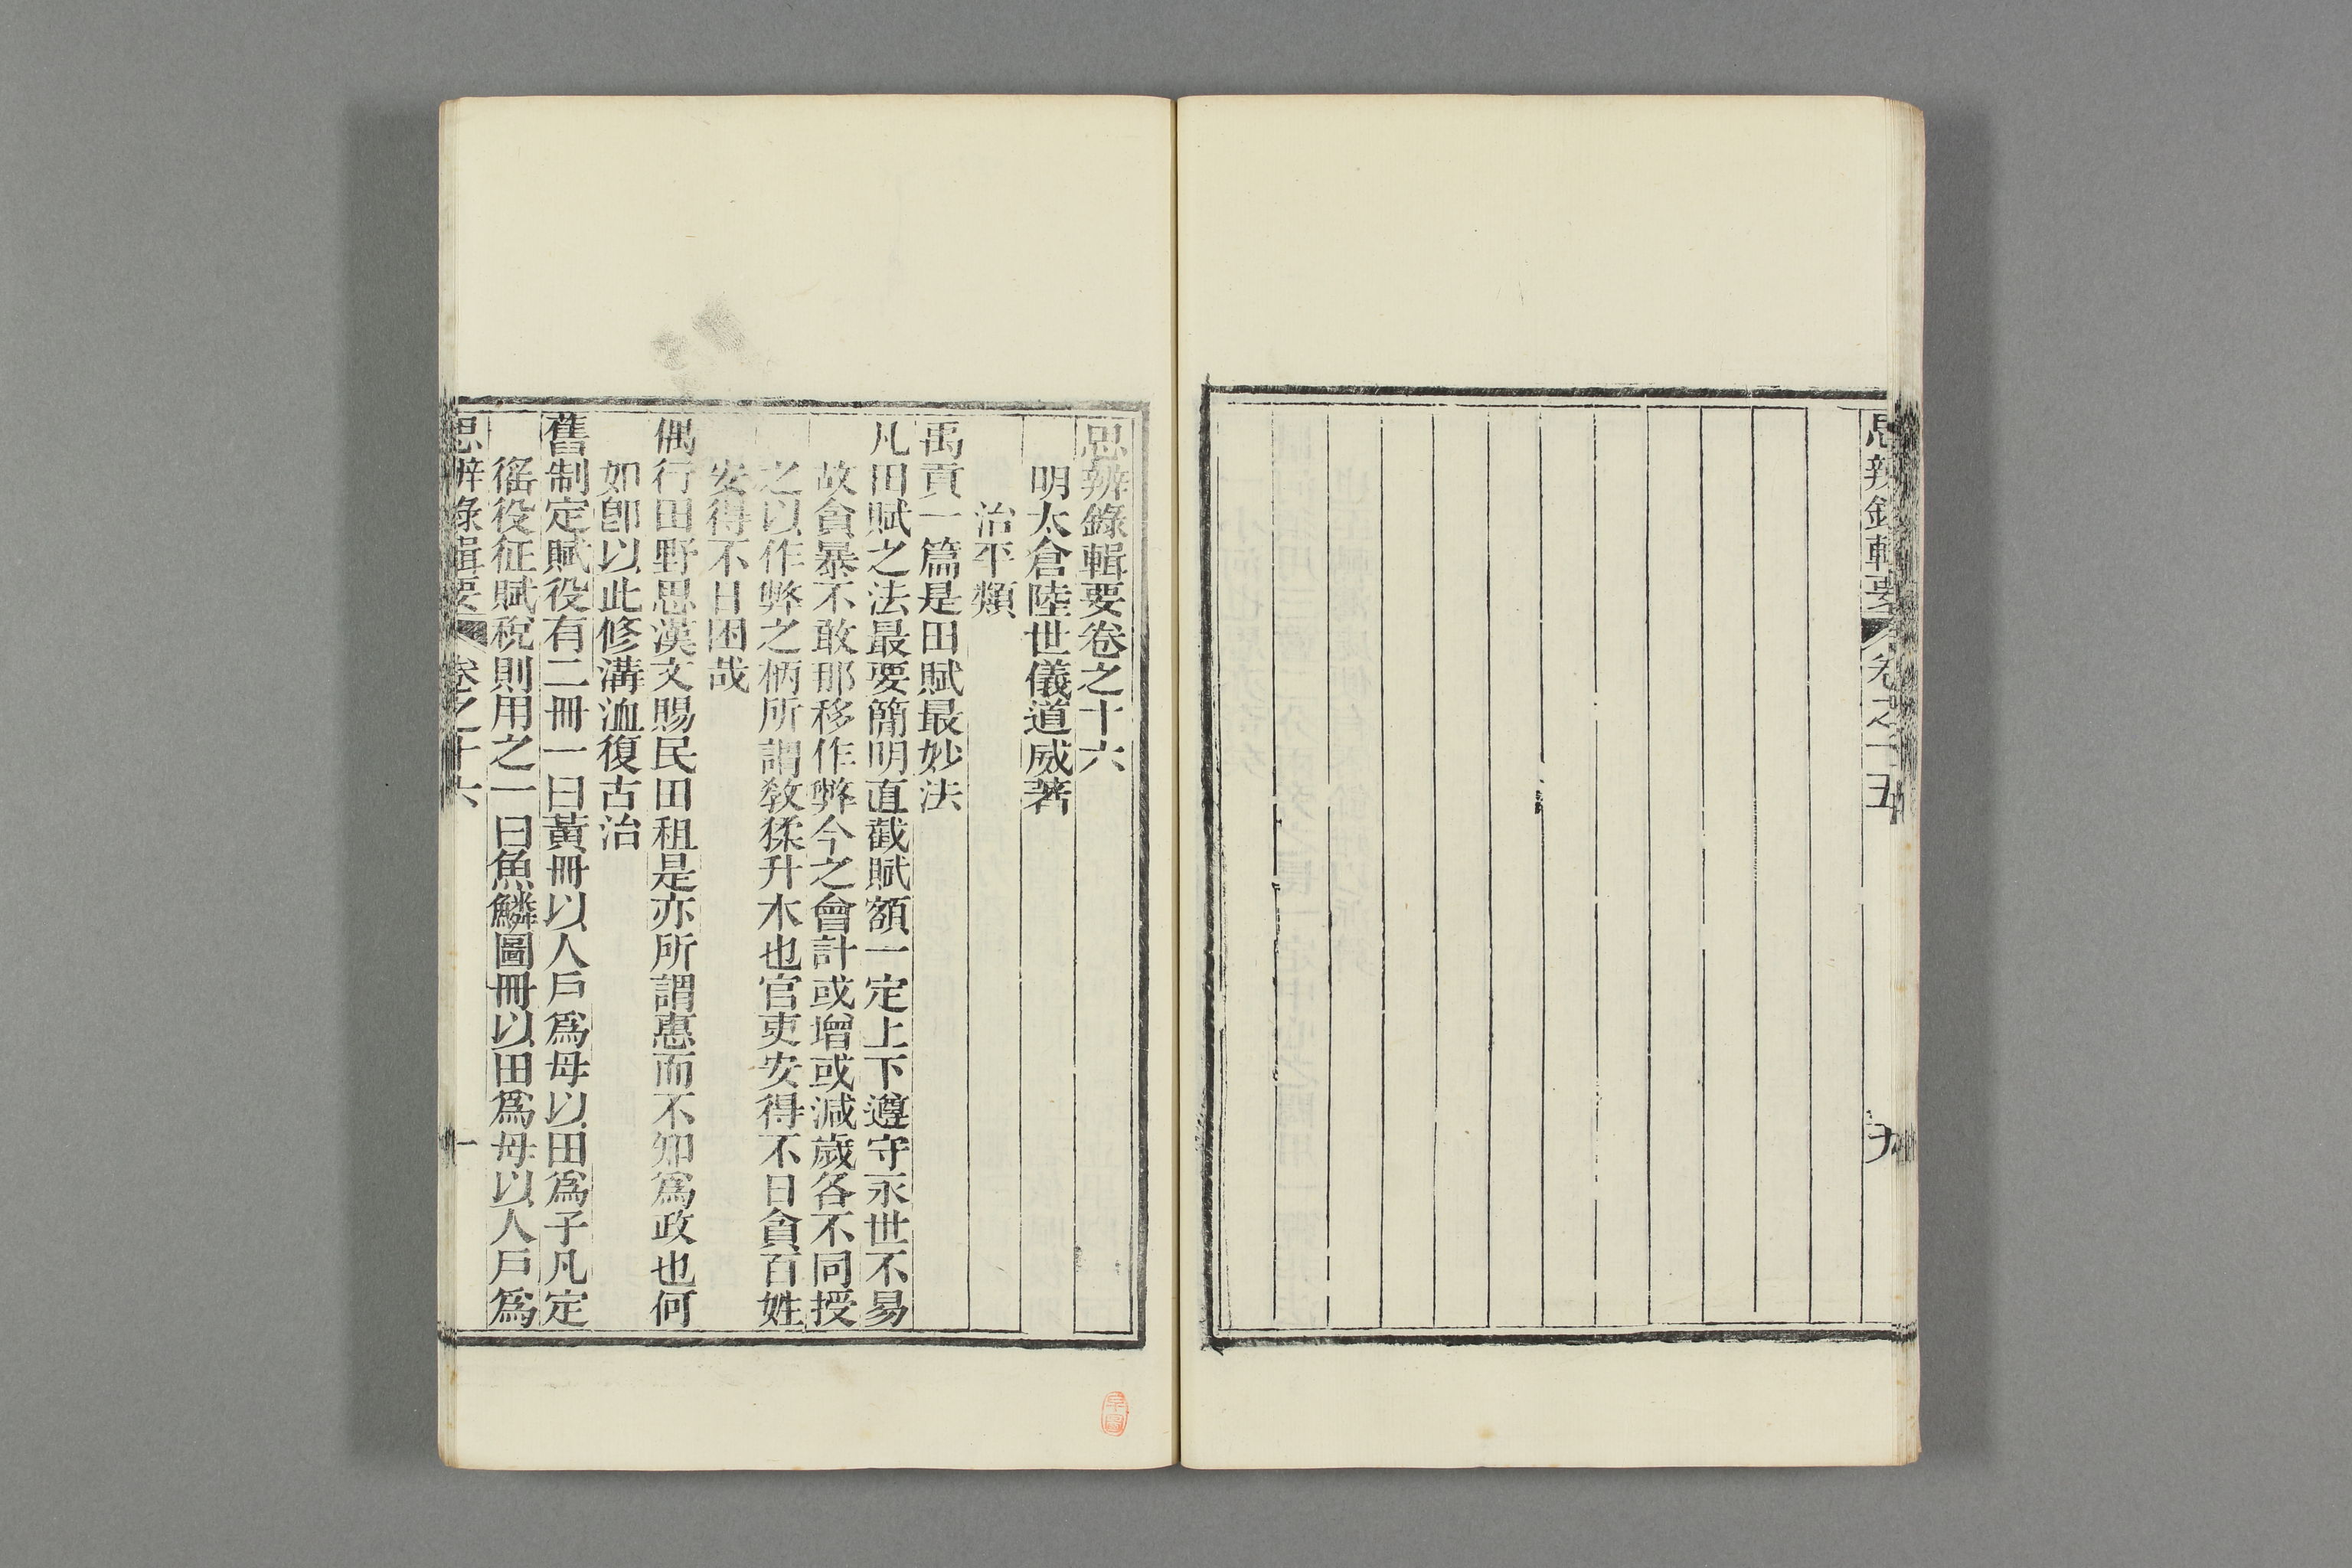 思辨錄輯要
卷之十五
九
思辨錄輯要卷之十六
明太倉陸世儀道威著
治平類
禹貢一篇是田賦最妙法
凡田賦之法最要簡明直截賦額一定上下遵守永世不易
故貪暴不敢那移作弊今之會計或增或減歲各不同授
之以作弊之柄所謂敎猱升木也官吏安得不日貪百姓
安得不日困哉
偶行田野思漢文賜民田租是亦所謂惠而不知爲政也何
如卽以此修溝洫復古治
舊制定賦役有二冊一曰黃冊以人戶爲母以田爲子凡定
徭役征賦稅則用之一曰魚鱗圖冊以田爲母以人戶爲
思辨錄輯要
卷之十六
一